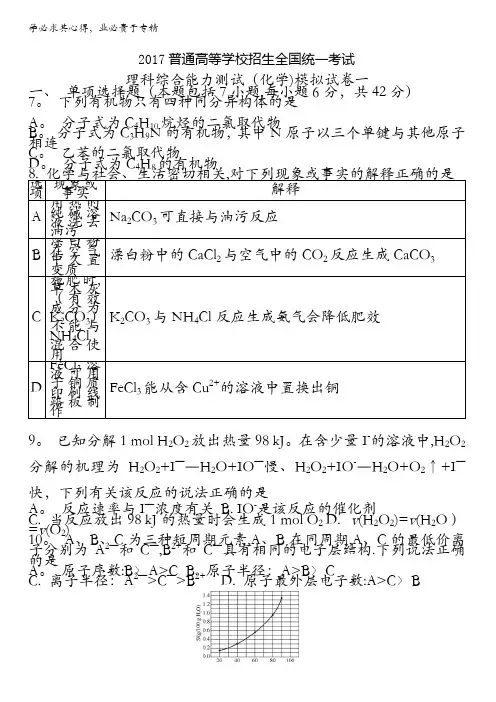 学必求其心得，业必贵于专精
2017普通高等学校招生全国统一考试
理科综合能力测试（化学)模拟试卷一
一、 单项选择题（本题包括7小题,每小题6分，共42分）
7。 下列有机物只有四种同分异构体的是
A。 分子式为C4H10烷烃的二氯取代物
B。 分子式为C3H9N的有机物，其中N原子以三个单键与其他原子
相连
C。 乙苯的二氯取代物
D。 分子式为C4H8的有机物
8. 化学与社会、生活密切相关,对下列现象或事实的解释正确的是
选项 现象或事实 解释
A 用热的纯碱溶液洗去油污 Na2CO3可直接与油污反应
B 变质 漂白粉中的CaCl2与空气中的CO2反应生成CaCO3
C 施肥时,草木灰（有效成分为K2CO3）不能与NH4Cl混合使用 K2CO3与NH4Cl反应生成氨气会降低肥效
D FeCl3溶液可用于铜质印刷线路板制作 FeCl3能从含Cu2+的溶液中置换出铜
9。 已知分解1 mol H2O2放出热量98 kJ。在含少量I-的溶液中,H2O2
分解的机理为 H2O2+I—―H2O+IO—慢、H2O2+IO-―H2O+O2↑+I—
快，下列有关该反应的说法正确的是
A。 反应速率与I—浓度有关 B. IO-是该反应的催化剂
C. 当反应放出98 kJ的热量时会生成1 mol O2 D. v(H2O2)=v(H2O）
=v(O2)
10。 A，B、C为三种短周期元素,A、B在同周期,A，C的最低价离
子分别为A2—和C—,B2+和C—具有相同的电子层结构.下列说法正确
的是
A。 原子序数:B〉A>C B。 原子半径：A>B〉C
C. 离子半径：A2—>C—>B2+ D. 原子最外层电子数:A>C〉B
S(g/100 g H2O)
1.4
1.2
1.0
0.8
0.6
0.4
0.2
0.0
20 40 60 80 100